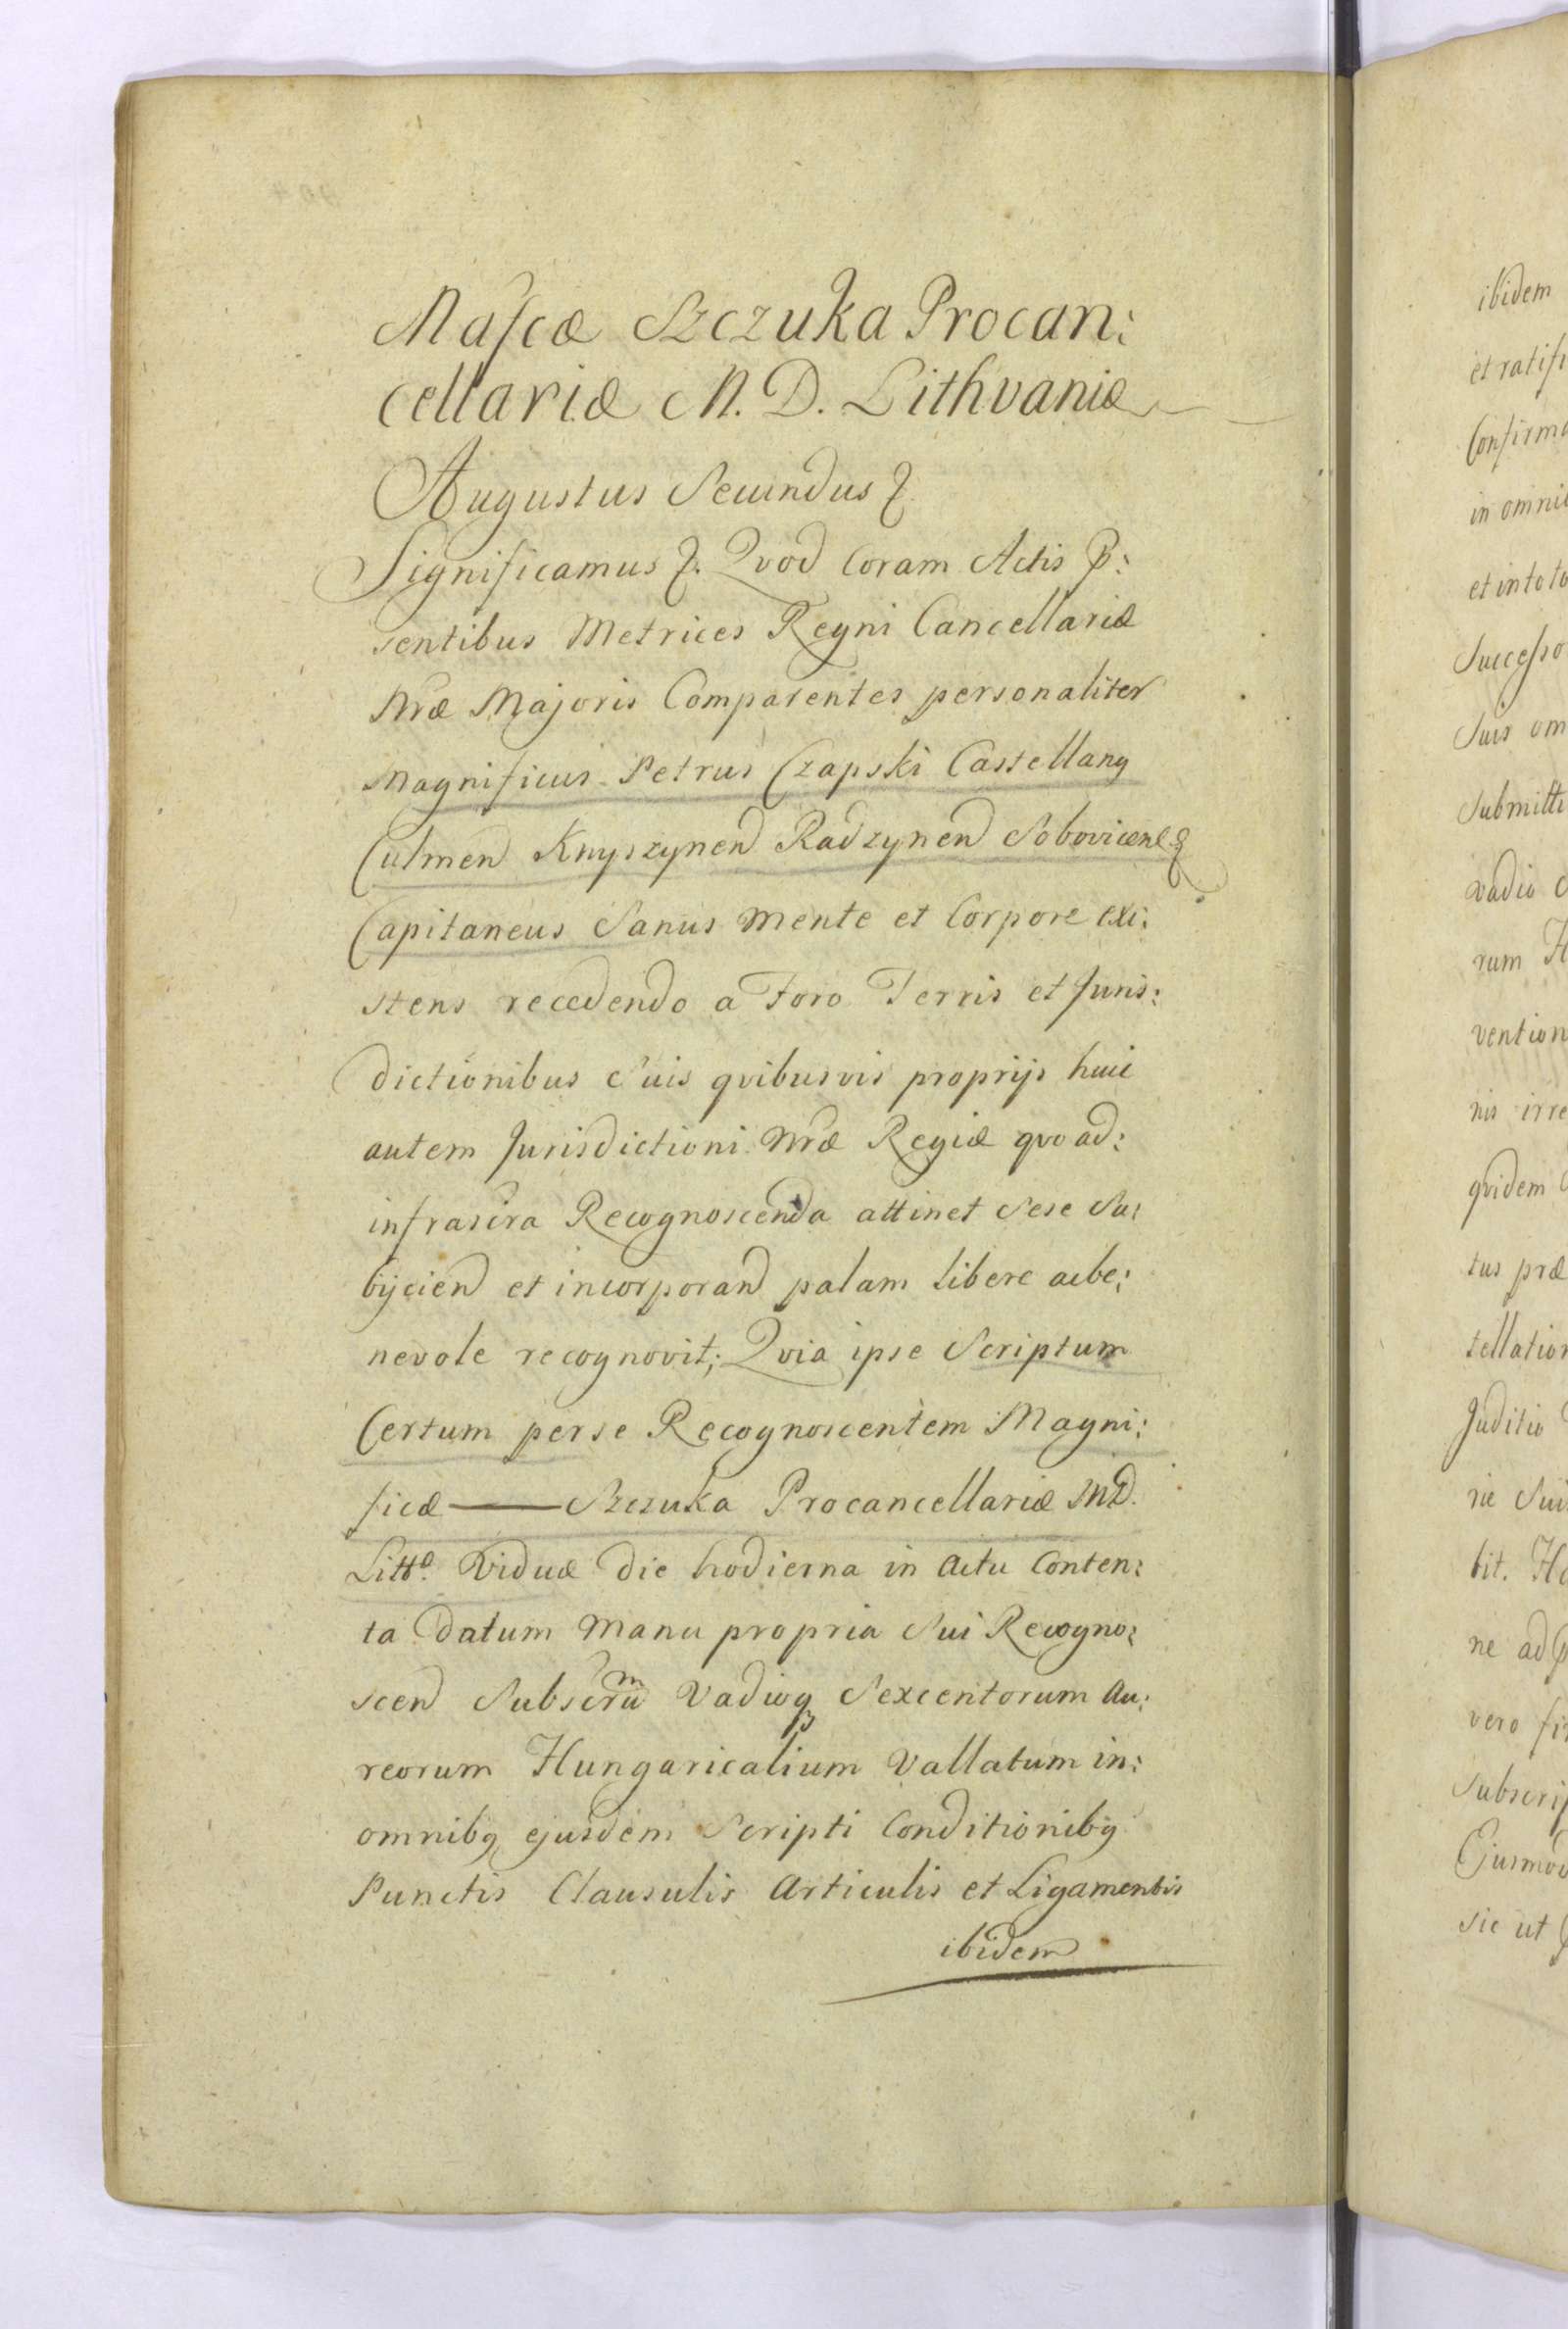 Mafcæ Szczuka Procan:
cellariæ M. D. Lithvaniæ
Augustus Secundus &.
Significamus &. Qvod Coram Actis P:
sentibus Metrices Regni Cancellariæ
Nræ Majoris Comparentes personaliter
Magnificus Petrus Czapski Castellanꝰ
Culmen Knyszynen Radzynen Sobovicen &
Capitaneus Sanus Mente et Corpore exi:
stens recedendo a Foro Terris et Juris:
dictionibus Suis qvibusvis proprijs huic
autem Jurisdictioni Nræ Regiæ qvo ad:
infrascra Recognoscenda attinet Sese Su:
bijcien et incorporand palam libere acbe:
nevole recognovit; Qvia ipse Scriptum
Certum per se Recognoscentem Magni:
ficæ — Szczuka Procancellariæ MD.
Litt. Viduæ die hodierna in Actu Conten:
ta Datum Manu propria Sui Recogno:
scen Subscrum Vadioq Sexcentorum Au:
reorum Hungaricalium Vallatum in:
omnibꝰ ejusdem Scripti Conditionibꝰ
Punctis Clausulis Articulis et Ligamentis
ibidem
ibidem
et ratifi
Confirma
in omni
et in toto
Successo
Suis om
Submitti
vadio
rum H
vention
nis irre
qvidem
tus præ
tellation
Juditio
rie Sui
bit. Ha
ne ad
vero fi
Subscrip
Ejusmod
sic ut